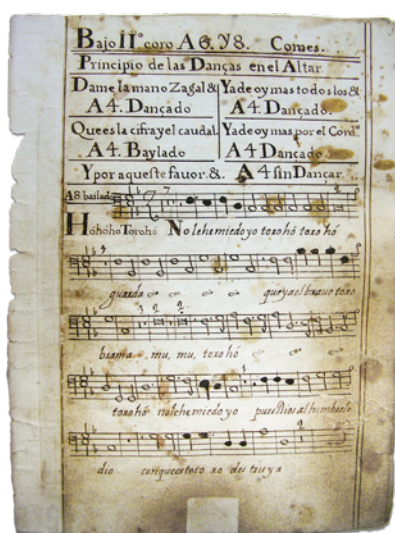 Bajo II.º coro A 6. Y 8. Comes.
Principio de las Danças en el Altar
Dame la mano Zagal & Ya de oy mas todos los &
A 4. Dançado A 4. Dançado.
Que es la cifra y el caudal. Ya de oy mas por el Cord.º
A 4. Baylado A 4 Dançado
Y por aqueste fauor. &. A 4 sin Dançar
A 8 bailado
Hohoho Torohó No le he miedo yo torohó torohó
guarda que ya el brauo toro
brama, mu, mu, torohó
torohó nolehemiedo yo pues Dios al hombre le
dio con que este toro